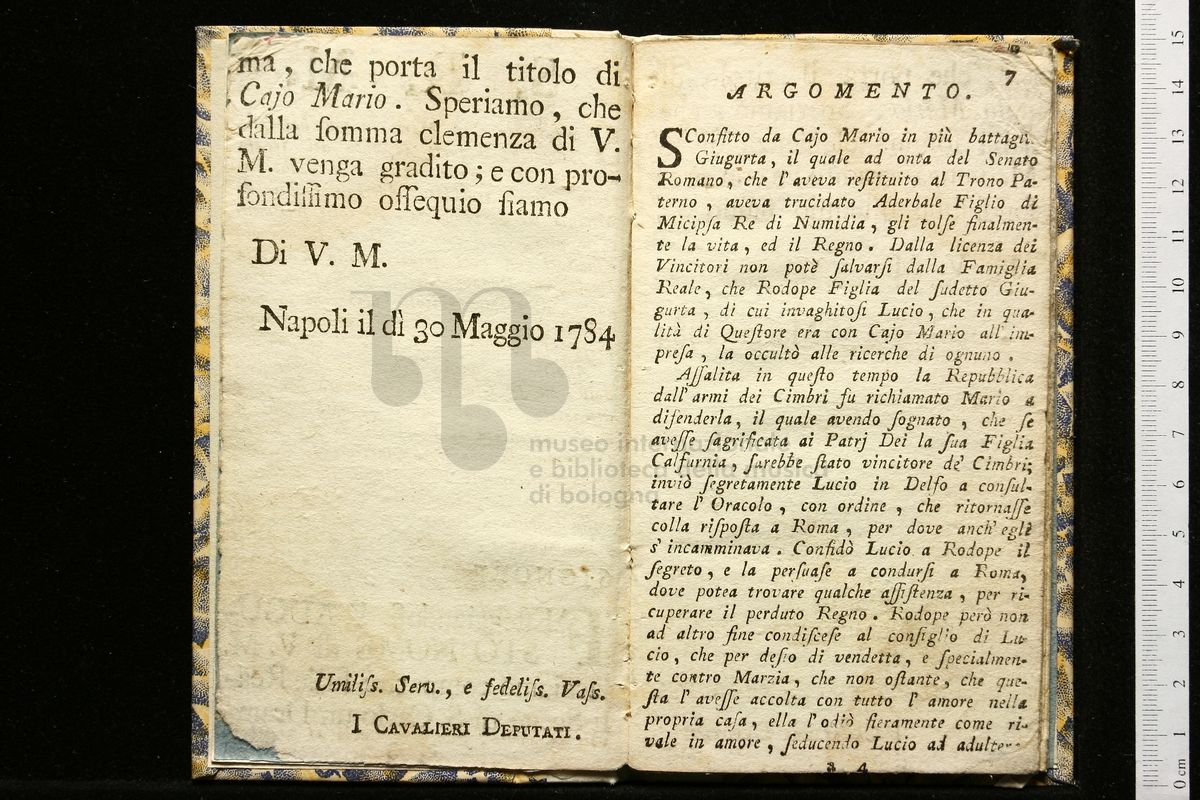 ma, che porta il titolo di
Cajo Mario. Speriamo, che
dalla ſomma clemenza di V.
M. venga gradito; e con pro-
fondiſſimo oſſequio ſiamo
Di V. M.
Napoli il dì 30 Maggio 1784
Umiliſs. Serv., e fedeliſs. Vaſs.
I CAVALIERI DEPUTATI.
7
ARGOMENTO.
SConfitto da Cajo Mario in più
Giugurta, il quale ad onta del Senato
Romano, che l'aveva reſtituito al Trono Pa-
terno, aveva trucidato Aderbale Figlio di
Micipſa Re di Numidia, gli tolſe finalmen-
te la vita, ed il Regno. Dalla licenza dei
Vincitori non potè ſalvarſi dalla Famiglia
Reale, che Rodope Figlia del ſudetto Giu-
gurta, di cui invaghitoſi Lucio, che in qua-
lità di Queſtore era con Cajo Mario all'im-
preſa, la occultò alle ricerche di ognuno.
Aſſalita in queſto tempo la Repubblica
dall'armi dei Cimbri fu richiamato Mario a
difenderla, il quale avendo ſognato, che ſe
aveſſe ſagrificata ai Patrj Dei la ſua Figlia
Calfurnia, ſarebbe ſtato vincitore de' Cimbri;
inviò ſegretamente Lucio in Delfo a conſul-
tare l'Oracolo, con ordine, che ritornaſſe
colla riſpoſta a Roma, per dove anch'egli
s'incamminava. Confidò Lucio a Rodope il
ſegreto, e la perſuaſe a condurſi a Roma,
dove potea trovare qualche aſſiſtenza, per ri-
cuperare il perduto Regno. Rodope però non
ad altro fine condiſceſe al conſiglio di Lu-
cio, che per deſio di vendetta, e ſpecialmen-
te contro Marzia, che non oſtante, che que-
ſta l'aveſſe accolta con tutto l'amore nella
propria caſa, ella l'odiò fieramente come ri-
vale in amore, ſeducendo Lucio ad
museo internazionale
e biblioteca della musica
di bologna
15
14
13
12
11
10
9
8
7
6
5
4
3
2
1
0 cm